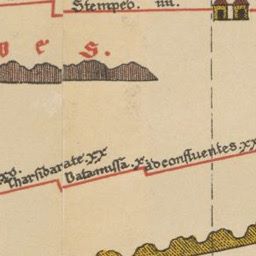 Stempeo. iiii.
o e s.
Charsidarate. XX
Vatamissa. X
Ad confluentes. XX